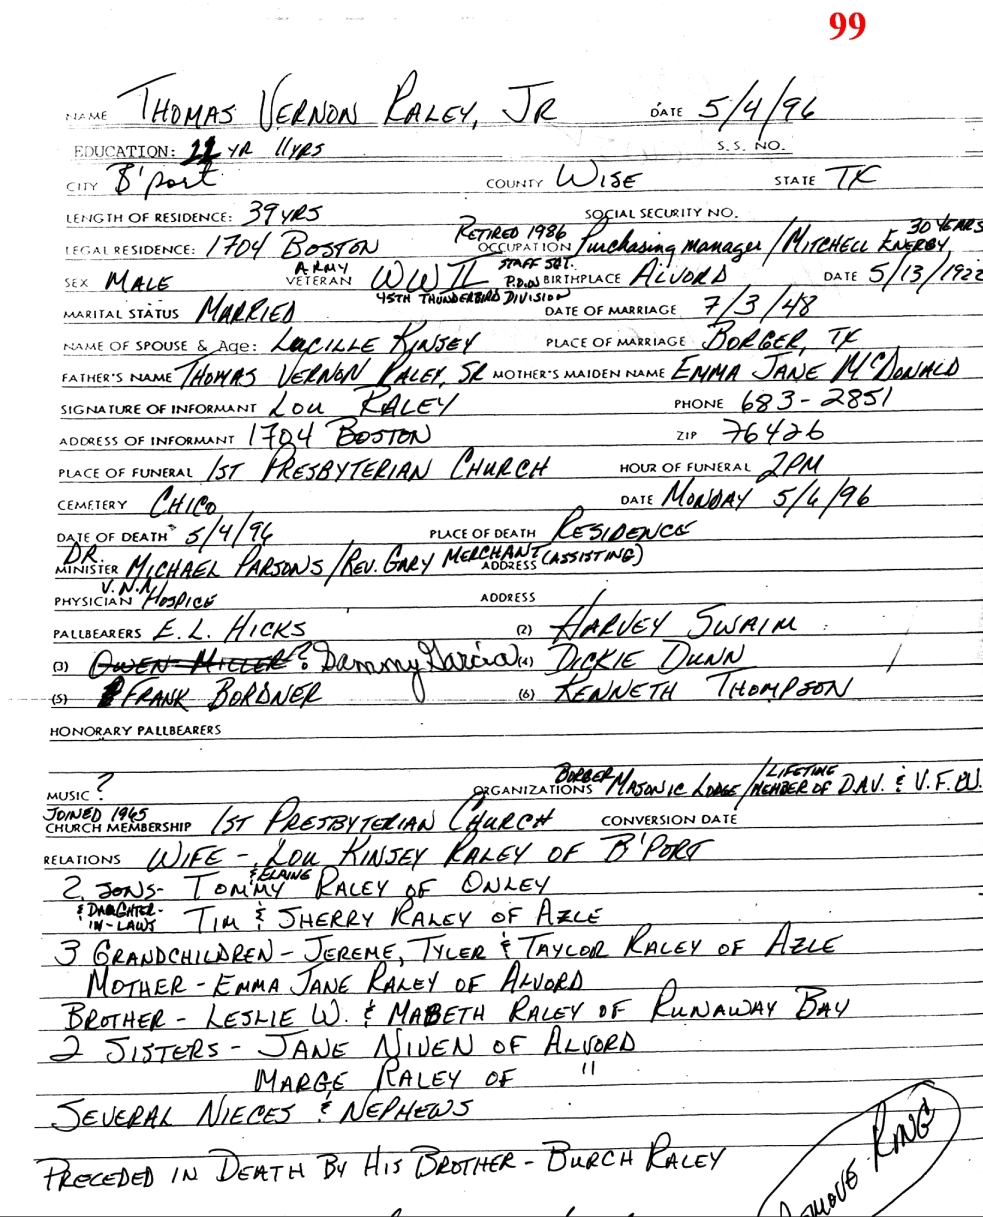 99
NAME THOMAS VERNON RALEY, JR DATE 5/4/96
EDUCATION: YR 11YRS S.S. NO.
CITY B'port COUNTY WISE STATE TX
LENGTH OF RESIDENCE: 39 YRS SOCIAL SECURITY NO.
RETIRED 1986 30 YEARS
LEGAL RESIDENCE: 1704 BOSTON OCCUPATION Purchasing manager / MITCHELL ENERGY
ARMY STAFF SGT.
SEX MALE VETERAN WW II P.O.W BIRTHPLACE ALVORD DATE 5/13/1922
45TH THUNDERBIRD DIVISION
MARITAL STATUS MARRIED DATE OF MARRIAGE 7/3/48
NAME OF SPOUSE & Age: LUCILLE KINSEY PLACE OF MARRIAGE BORGER, TX
FATHER'S NAME THOMAS VERNON RALEY, SR MOTHER'S MAIDEN NAME EMMA JANE McDONALD
SIGNATURE OF INFORMANT LOU RALEY PHONE 683-2851
ADDRESS OF INFORMANT 1704 BOSTON ZIP 76426
PLACE OF FUNERAL 1ST PRESBYTERIAN CHURCH HOUR OF FUNERAL 2PM
CEMETERY CHICO DATE MONDAY 5/6/96
DATE OF DEATH 5/4/96 PLACE OF DEATH RESIDENCE
DR.
MINISTER MICHAEL PARSONS/REV. GARY MERCHANT ADDRESS (ASSISTING)
V.N.A
PHYSICIAN HOSPICE ADDRESS
PALLBEARERS E.L. HICKS (2) HARVEY SWAIM
(3) OWEN MILLER? Sammy Garcia (4) DICKIE DUNN
(5) FRANK BORDNER (6) KENNETH THOMPSON
HONORARY PALLBEARERS
BORGER LIFETIME
MUSIC ? ORGANIZATIONS MASONIC LODGE/MEMBER OF D.A.V. & V.F.W.
JOINED 1965
CHURCH MEMBERSHIP 1ST PRESBYTERIAN CHURCH CONVERSION DATE
RELATIONS WIFE - LOU KINSEY RALEY OF B'PORT
& ELAINE
2 SONS- TOMMY RALEY OF ONLEY
& DAUGHTER-IN-LAWS TIM & SHERRY RALEY OF AZLE
3 GRANDCHILDREN - JEREME, TYLER & TAYLOR RALEY OF AZLE
MOTHER - EMMA JANE RALEY OF ALVORD
BROTHER - LESLIE W. & MABETH RALEY OF RUNAWAY BAY
2 SISTERS - JANE NIVEN OF ALVORD
MARGE RALEY OF "
SEVERAL NIECES & NEPHEWS
PRECEDED IN DEATH BY HIS BROTHER - BURCH RALEY
REMOVE RING